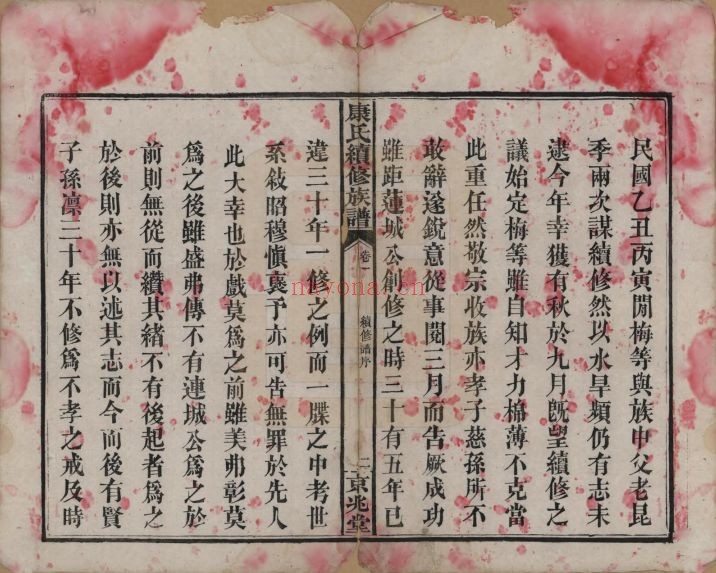 民國乙丑丙寅閒梅等與族中父老昆
季兩次謀續修然以水旱頻仍有志未
逮今年幸獲有秋於九月既望續修之
議始定梅等雖自知才力棉薄不克當
此重任然敬宗收族亦孝子慈孫所不
敢辭遂銳意從事閱三月而告厥成功
雖距蓮城公創修之時三十有五年已
康氏續修族譜 卷一 續修譜序 二 京兆堂
違三十年一修之例而一牒之中考世
系敍昭穆愼襃予亦可告無罪於先人
此大幸也於戲莫爲之前雖美弗彰莫
爲之後雖盛弗傳不有連城公爲之於
前則無從而纘其緒不有後起者爲之
於後則亦無以述其志而今而後有賢
子孫凛三十年不修爲不孝之戒及時